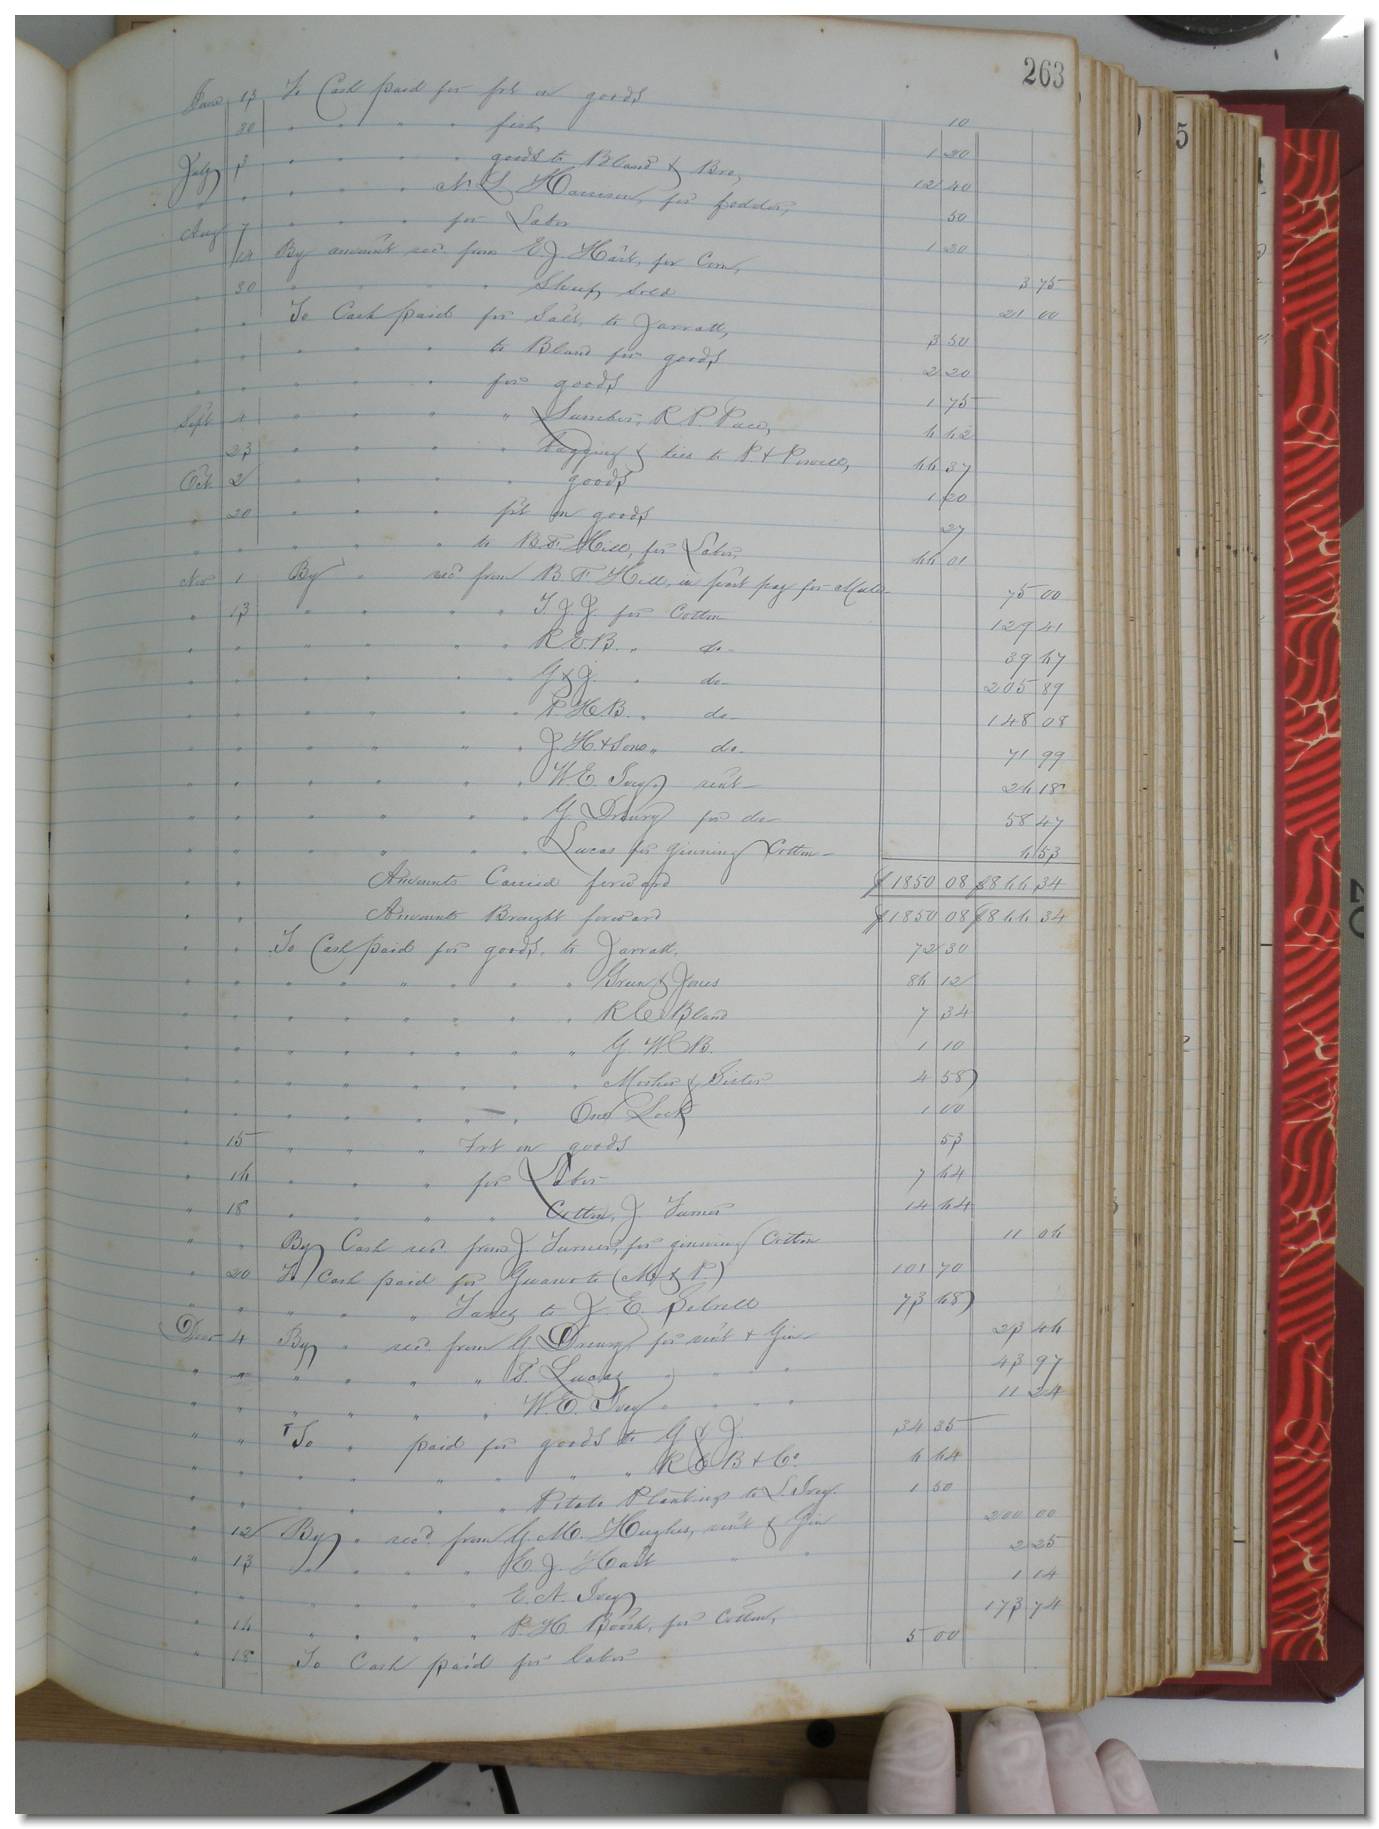 263
June 13 To Cash paid for frt on goods 10
30 " " " " fish, 1 20
July 3 " " " " goods to Bland & Bro, 12 40
" " " " " N. L. Harrison, for fodder, 50
Aug 7 " " " " for Labor 1 20
" 14 By amount rec'd from E. J. Hart, for Corn, 3 75
" 30 " " " " Sheep sold 21 00
" " To Cash paid for Salt, to Jarratt, 3 50
" " " " " " to Bland for goods 2 20
" " " " " " for goods 1 75
Sept 4 " " " " " Lumber, R. P. Pace, 6 62
" 23 " " " " Bagging & ties to P. & Powell, 66 37
Oct 2 " " " " " goods 1 20
" 20 " " " " frt on goods 27
" " " " " " to B. F. Hill, for Labor, 66 01
Nov 1 By " rec'd from B. F. Hill, in part pay for Mule 75 00
" 13 " " " " " T. J. J. for Cotton 129 41
" " " " " " " R. E. B. " do 39 67
" " " " " " " G & J. " do 205 89
" " " " " " " P. H. B. " do 148 08
" " " " " " " J. H & Sons " do 71 99
" " " " " " " W. E. Ivey, rent 26 18
" " " " " " " G. Drewry for do 58 47
" " " " " " " Lucas for ginning Cotton 6 53
" " Amounts Carried forward $1850 08 $866 34
" " Amounts Brought forward $1850 08 $866 34
" " To Cash paid for goods, to Jarratt, 72 30
" " " " " " " " " Green & Jones 86 12
" " " " " " " " " R. E. Bland 7 34
" " " " " " " " " G. W. B. 1 10
" " " " " " " " Mother & Sister 4 58
" " " " " " " One Lock 1 00
" 15 " " " Frt on goods 53
" 16 " " " for Labor 7 64
" 18 " " " " Cotton, J. Turner 14 64
" " By Cash rec'd from J. Turner, for ginning Cotton 11 06
" 20 To Cash paid for Guano to (M & P.) 101 70
" " " " " to J. E. 73 68
Decr 4 By " rec'd from G. Drewry for rent & Gin 23 46
" " " " " " T. Lucas " " " 43 97
" " " " " " W. E. Ivey " " " " 11 24
" " To " paid for goods to G & J. 34 35
" " " " " " " R E B & Co 6 64
" " " " " " Potato Plantings to L. Ivey. 1 50
" 12 By " rec'd from G. M. Hughes, rent & Gin 200 00
" 13 " " " " E. J. Hart " " 2 25
" " " " " " E. A. Ivey 1 14
" 14 " " " " P. H. Booth, for Cotton, 173 74
" 18 To Cash paid for labor 5 00
5